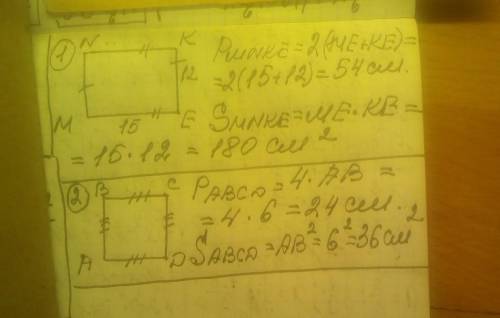 1 N K P MNKE = 2(ME+KE) =
12 = 2(15+12) = 54 см.
M 15 E S MNKE = ME · KE =
= 15 · 12 = 180 см²
2 B C P ABCD = 4 · AB =
= 4 · 6 = 24 см.
A D S ABCD = AB² = 6² = 36 см²